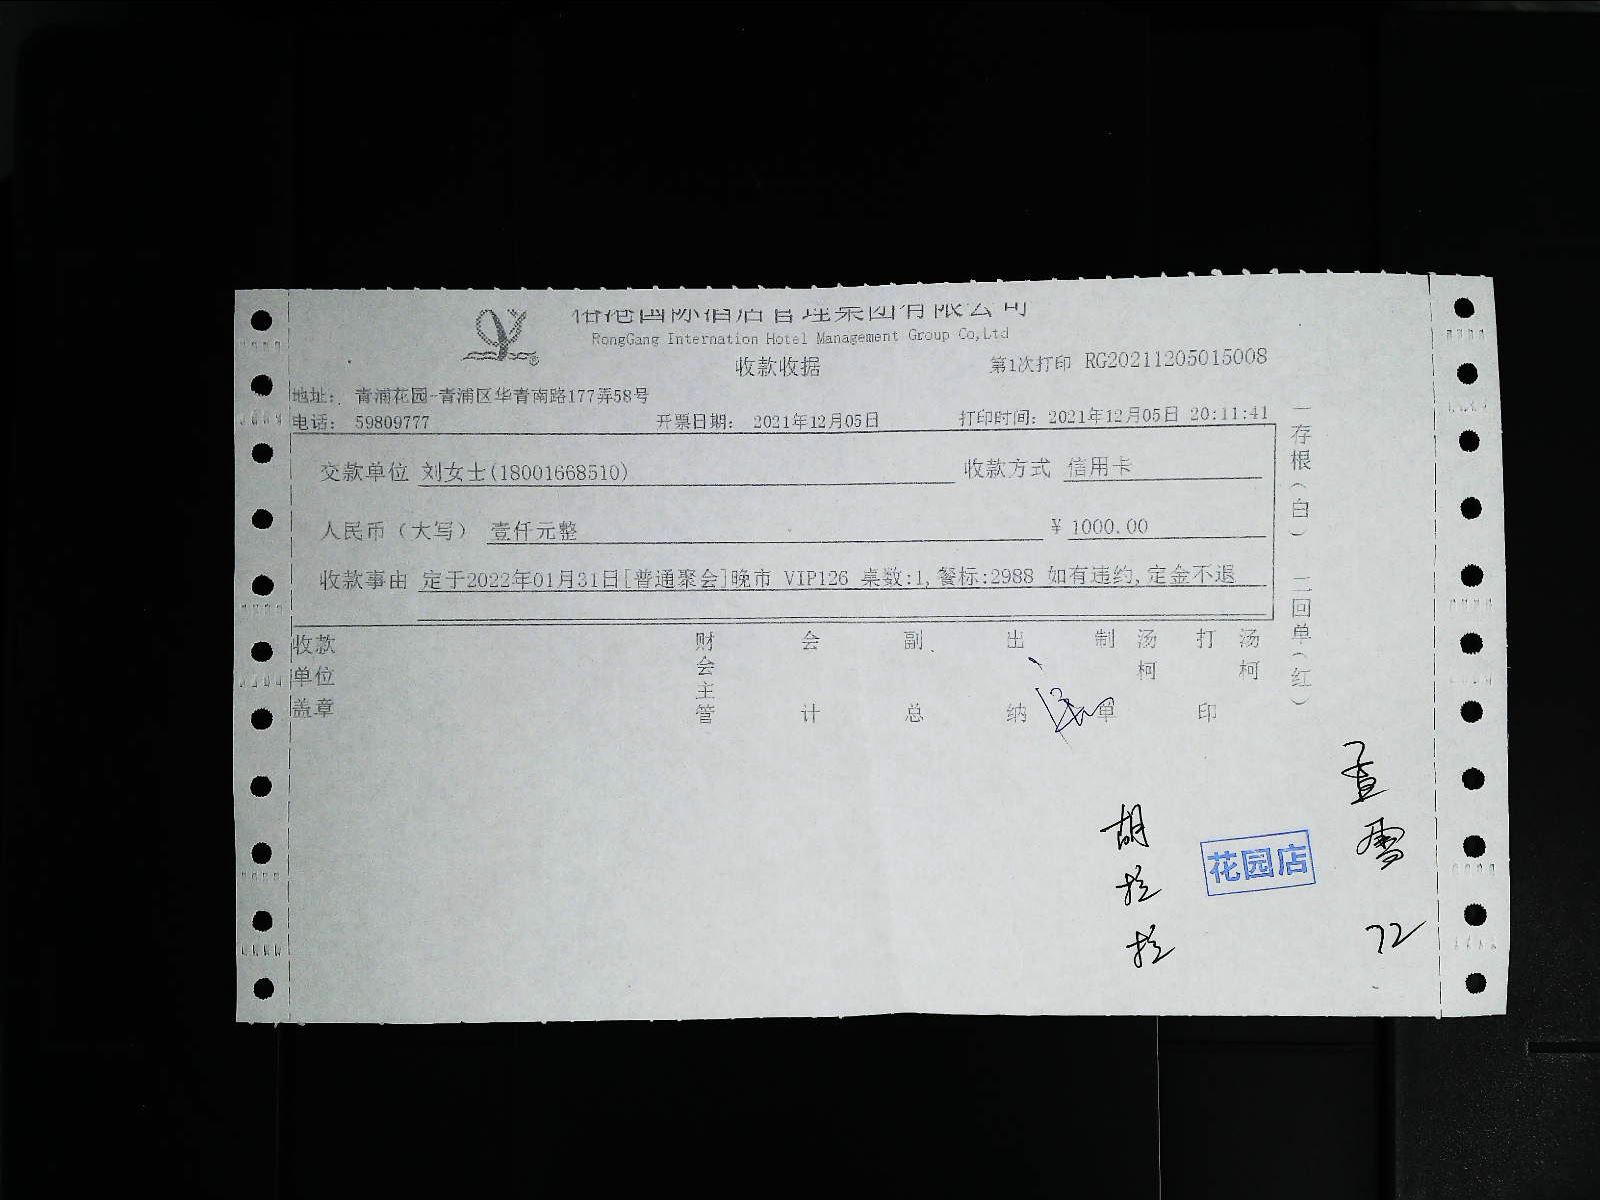 港国际酒店管理集团有限公司
RongGang Internation Hotel Management Group Co,Ltd
收款收据
第1次打印 RG20211205015008
地址: 青浦花园-青浦区华青南路177弄58号
电话: 59809777 开票日期: 2021年12月05日 打印时间: 2021年12月05日 20:11:41
交款单位 刘女士(18001668510) 收款方式 信用卡
人民币（大写） 壹仟元整 ¥ 1000.00
收款事由 定于2022年01月31日[普通聚会]晚市 VIP126 桌数:1,餐标:2988 如有违约,定金不退
收款单位盖章 财会主管 会计 副总 出纳 制单 汤柯 打印 汤柯
一存根（白） 二回单（红）
胡拉拉
花园店
雪
72